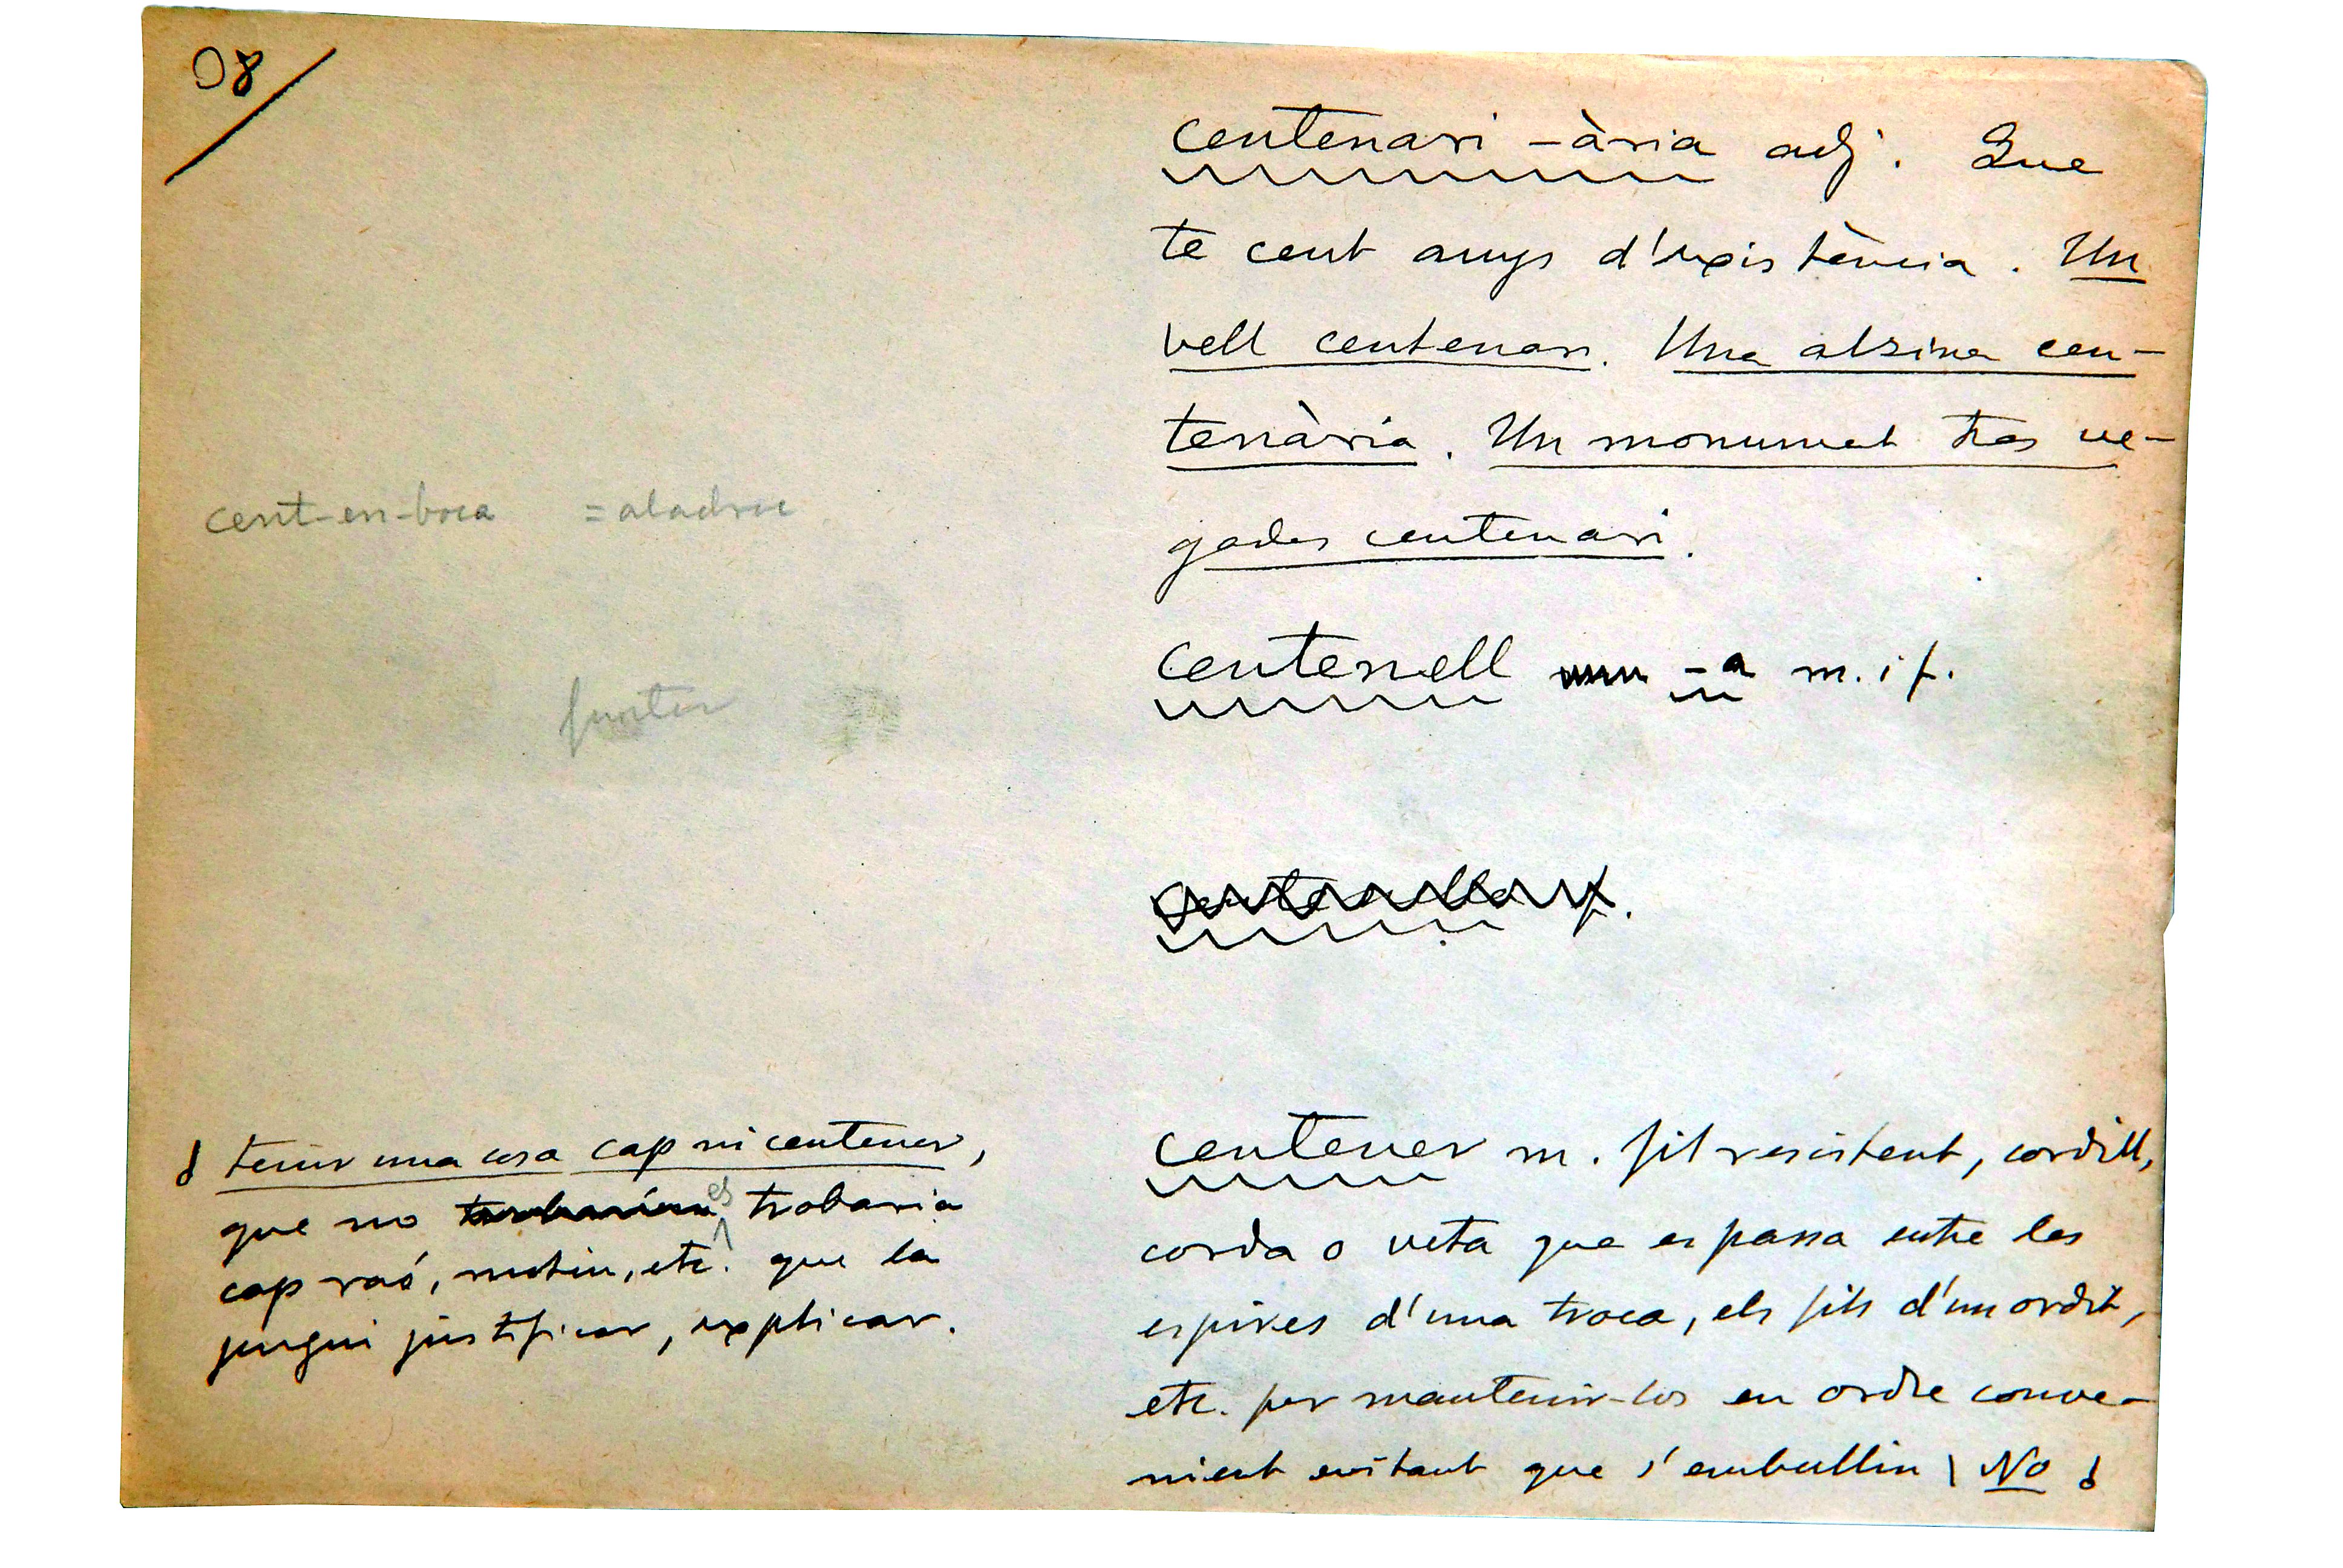 98
centenari -ària adj. Que
te cent anys d'existència. Un
vell centenari. Una alzina cen-
tenària. Un monument tres ve-
gades centenari.
cent-en-boca = aladroc
centenell -a m. i f.
centener m. Fil resistent, cordill,
corda o veta que es passa entre les
espires d'una troca, els fils d'un ordit,
etc. per mantenir-los en ordre conve-
nient evitant que s'embullin | No
tenir una cosa cap ni centener,
que no es trobaria
cap raó, motiu, etc. que la
pugui justificar, explicar.